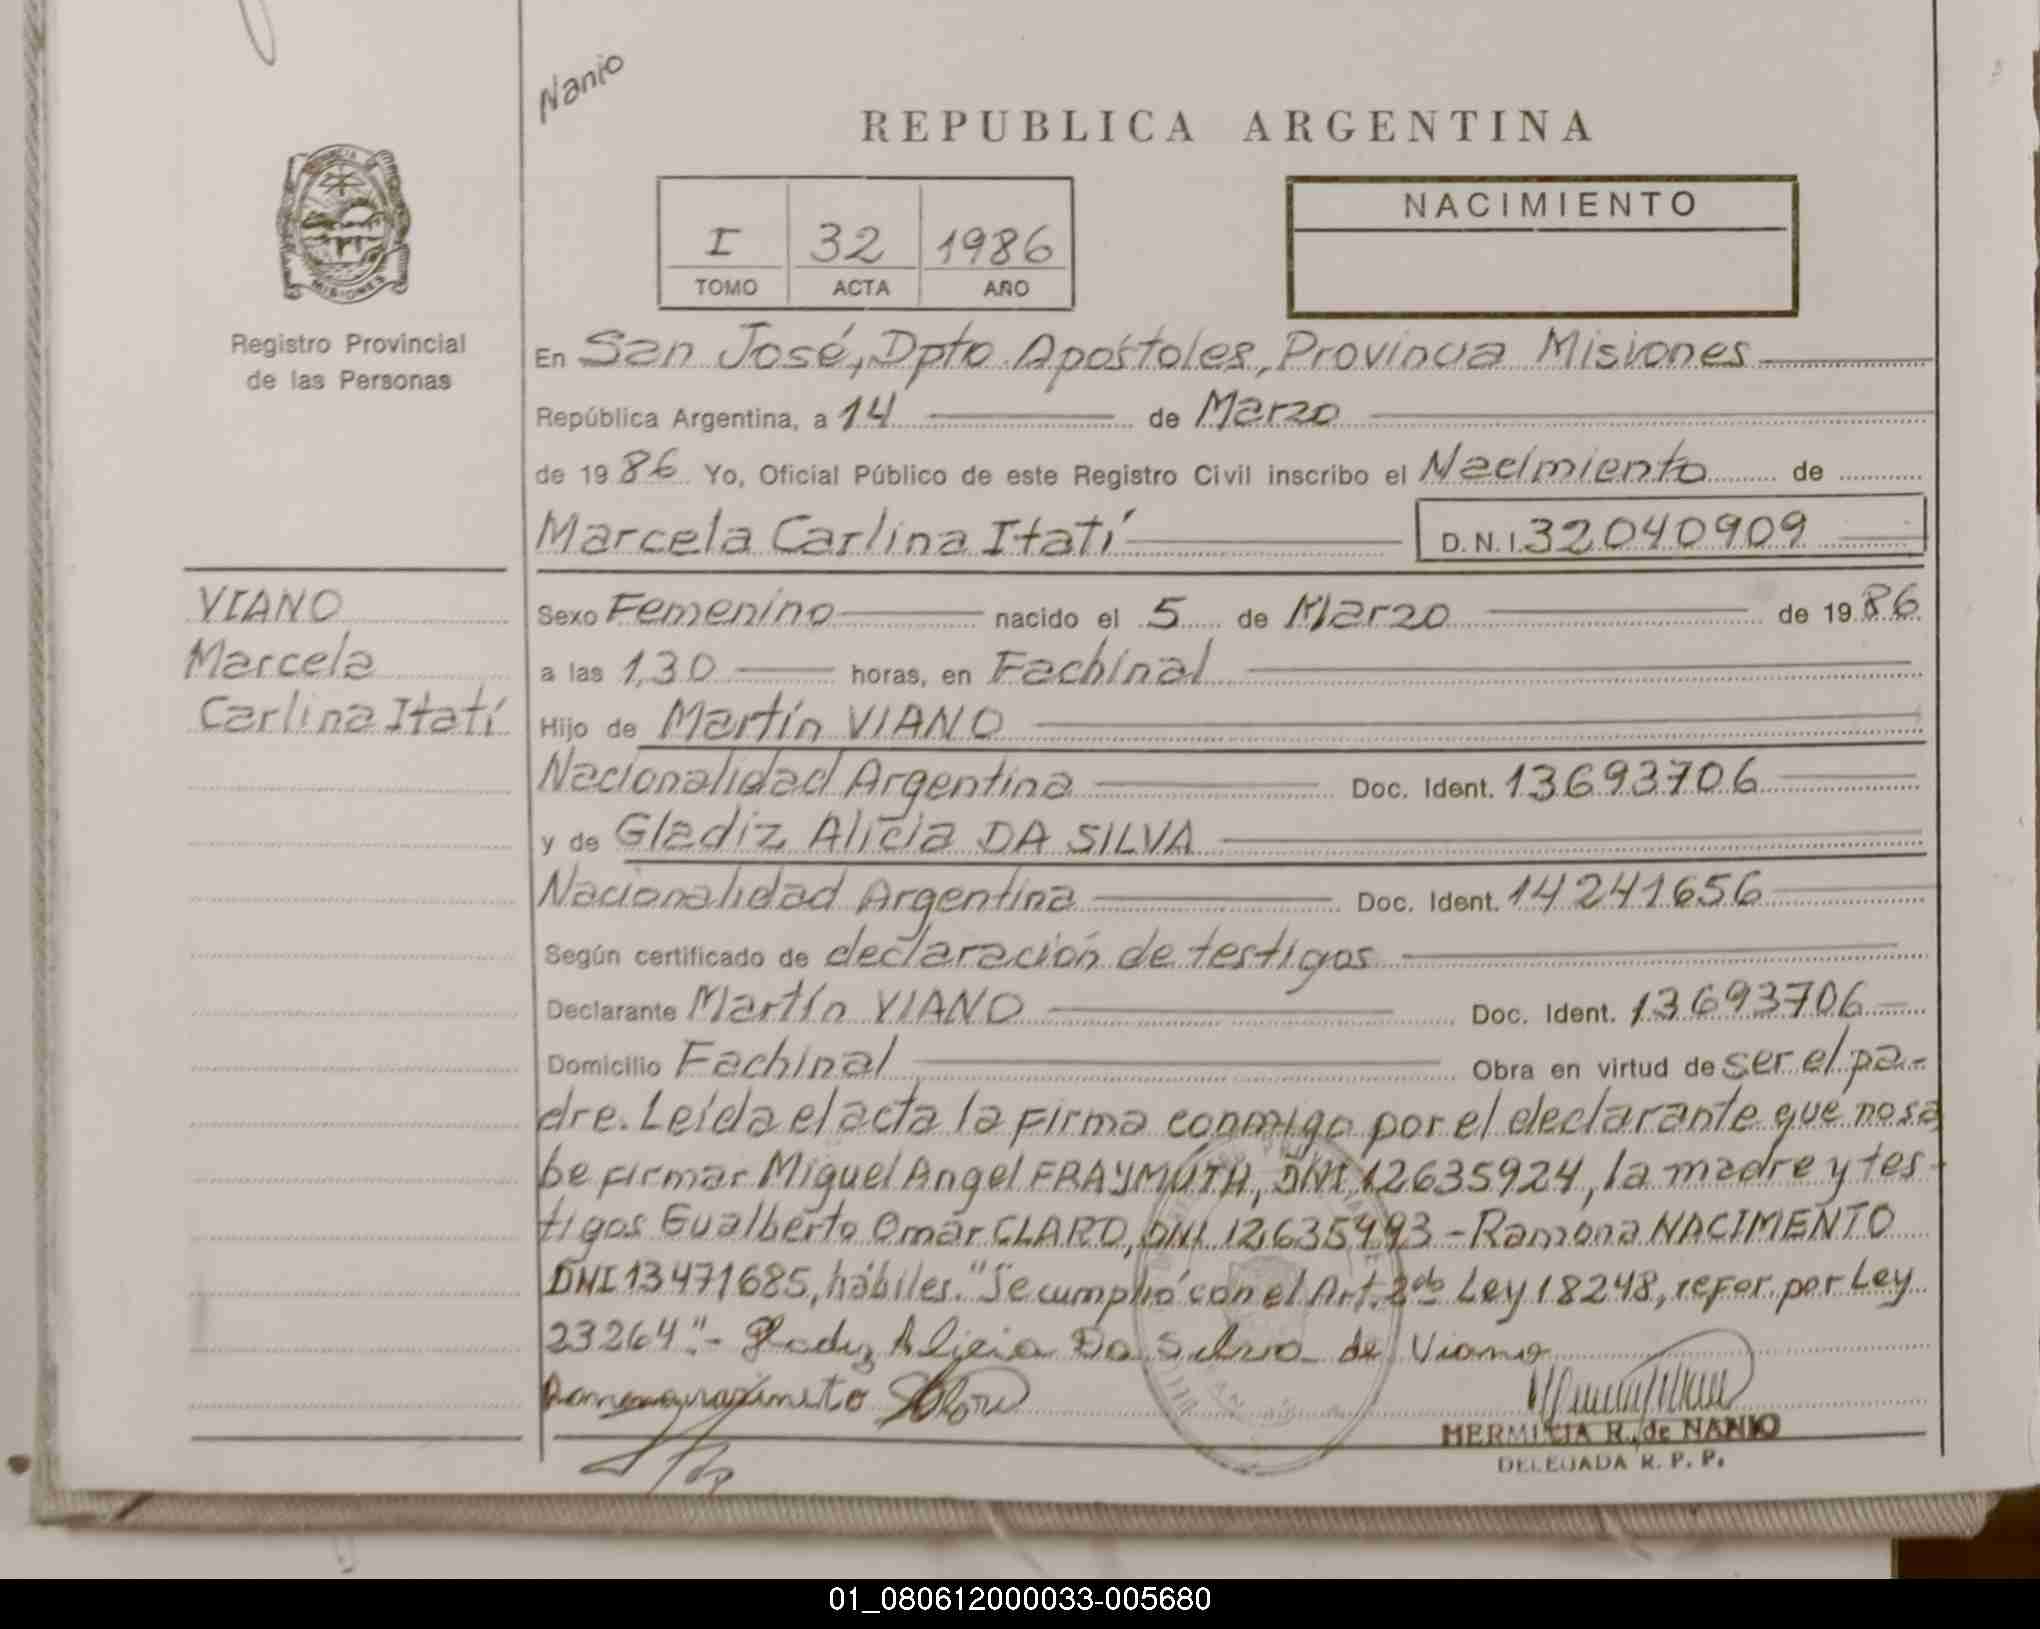 Nanio
REPUBLICA ARGENTINA
I 32 1986
TOMO ACTA AÑO
NACIMIENTO
PROVINCIA DE MISIONES
Registro Provincial
de las Personas
En San José, Dpto. Apóstoles, Provincia Misiones
República Argentina, a 14 de Marzo
de 1986 Yo, Oficial Público de este Registro Civil inscribo el Nacimiento de
Marcela Carlina Itatí D.N.I. 32040909
VIANO
Marcela
Carlina Itatí
Sexo Femenino nacido el 5 de Marzo de 1986
a las 1,30 horas, en Fachinal
Hijo de Martín VIANO
Nacionalidad Argentina Doc. Ident. 13693706
y de Gladiz Alicia DA SILVA
Nacionalidad Argentina Doc. Ident. 14241656
Según certificado de declaración de testigos
Declarante Martín VIANO Doc. Ident. 13693706
Domicilio Fachinal Obra en virtud de ser el pa-
dre. Leída el acta la firma conmigo por el declarante que no sa
be firmar Miguel Angel FRAYMUTH, DNI 12635924, la madre y tes-
tigos Gualberto Omar CLARO, DNI 12635993 - Ramona NACIMENTO
DNI 13471685, hábiles. "Se cumplió con el Art. 2do Ley 18248, refor. por Ley
23264".- Gladiz Alicia Da Silva de Viano
HERMINIA R. de NANIO
DELEGADA R. P. P.
01_080612000033-005680